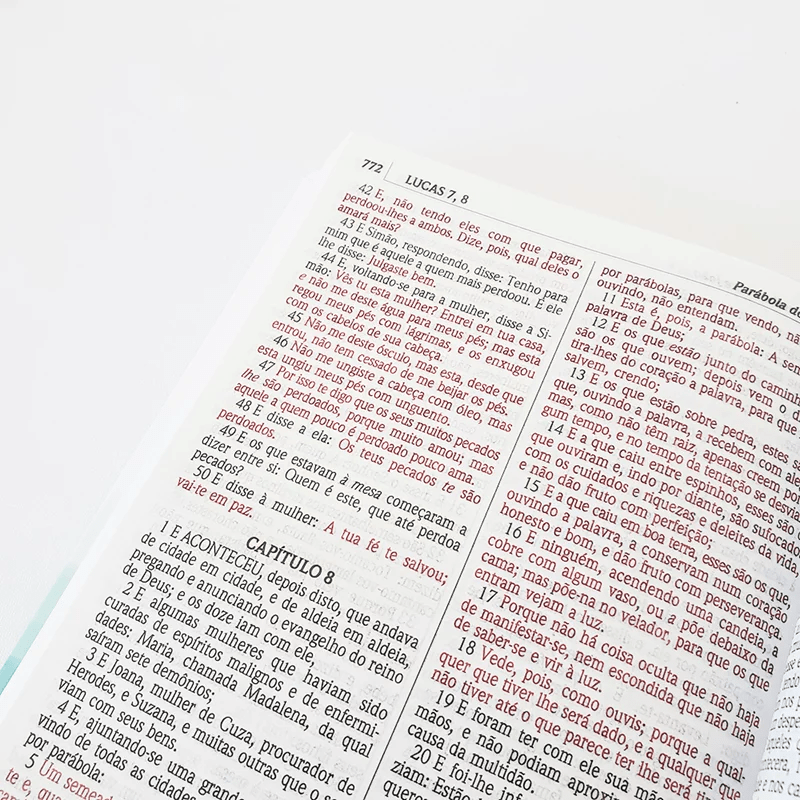 772
LUCAS 7, 8
42 E, não tendo eles com que pagar,
perdoou-lhes a ambos. Dize, pois, qual deles o
amará mais?
43 E Simão, respondendo, disse: Tenho para
mim que é aquele a quem mais perdoou. E ele
lhe disse: Julgaste bem.
44 E, voltando-se para a mulher, disse a Si-
mão: Vês tu esta mulher? Entrei em tua casa,
e não me deste água para meus pés; mas esta
regou meus pés com lágrimas, e os enxugou
com os cabelos de sua cabeça.
45 Não me deste ósculo, mas esta, desde que
entrou, não tem cessado de me beijar os pés.
46 Não me ungiste a cabeça com óleo, mas
esta ungiu meus pés com unguento.
47 Por isso te digo que os seus muitos pecados
lhe são perdoados, porque muito amou; mas
aquele a quem pouco é perdoado pouco ama.
48 E disse a ela: Os teus pecados te são
perdoados.
49 E os que estavam à mesa começaram a
dizer entre si: Quem é este, que até perdoa
pecados?
50 E disse à mulher: A tua fé te salvou;
vai-te em paz.
CAPÍTULO 8
1 E ACONTECEU, depois disto, que andava
de cidade em cidade, e de aldeia em aldeia,
pregando e anunciando o evangelho do reino
de Deus; e os doze iam com ele,
2 E algumas mulheres que haviam sido
curadas de espíritos malignos e de enfermi-
dades: Maria, chamada Madalena, da qual
saíram sete demônios;
3 E Joana, mulher de Cuza, procurador de
Herodes, e Suzana, e muitas outras que o
viam com seus bens.
4 E, ajuntando-se uma grande
vindo de todas as cidades
por parábola:
5 Um
te e,
Parábola
por parábolas, para que vendo,
ouvindo, não entendam.
11 Esta é, pois, a parábola: A
palavra de Deus;
12 E os que estão junto do
são os que ouvem; depois vem o
tira-lhes do coração a palavra, para que
salvem, crendo;
13 E os que estão sobre pedra, estes
que, ouvindo a palavra, a recebem com
mas, como não têm raiz, apenas creem por
gum tempo, e no tempo da tentação se
14 E a que caiu entre espinhos, esses são
que ouviram e, indo por diante, são
com os cuidados e riquezas e deleites da vida,
e não dão fruto com perfeição;
15 E a que caiu em boa terra, esses são os que,
ouvindo a palavra, a conservam num coração
honesto e bom, e dão fruto com perseverança.
16 E ninguém, acendendo uma candeia, a
cobre com algum vaso, ou a põe debaixo da
cama; mas põe-na no velador, para que os que
entram vejam a luz.
17 Porque não há coisa oculta que não haja
de manifestar-se, nem escondida que não haja
de saber-se e vir à luz.
18 Vede, pois, como ouvis; porque a qual-
quer que tiver lhe será dado, e a qualquer que
não tiver até o que parece ter lhe será
19 E foram ter com ele sua mãe
mãos, e não podiam
causa da multidão.
20 E foi-lhe
ziam: Estão